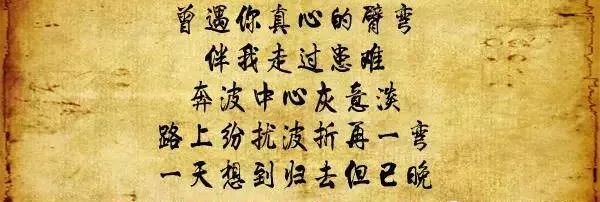 曾遇你真心的臂弯
伴我走过患难
奔波中心灰意淡
路上纷扰波折再一弯
一天想到归去但已晚